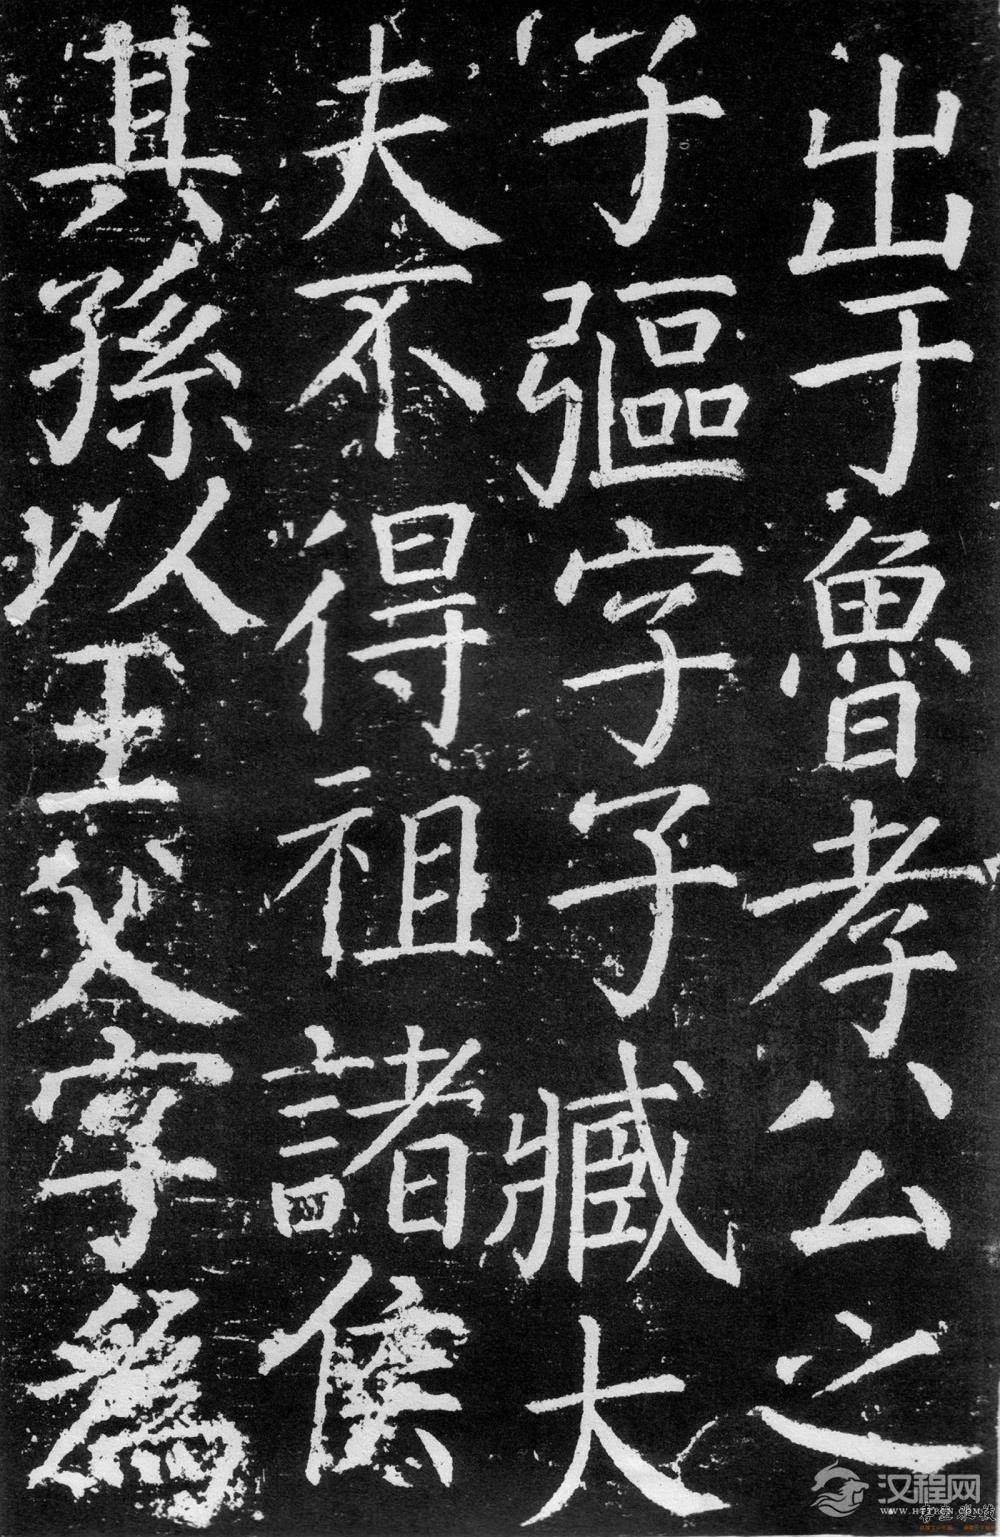 出于魯孝公之
子彄字子臧大
夫不得祖諸侯
其孫以王父字為
汉程网
WWW.HTTPCN.COM